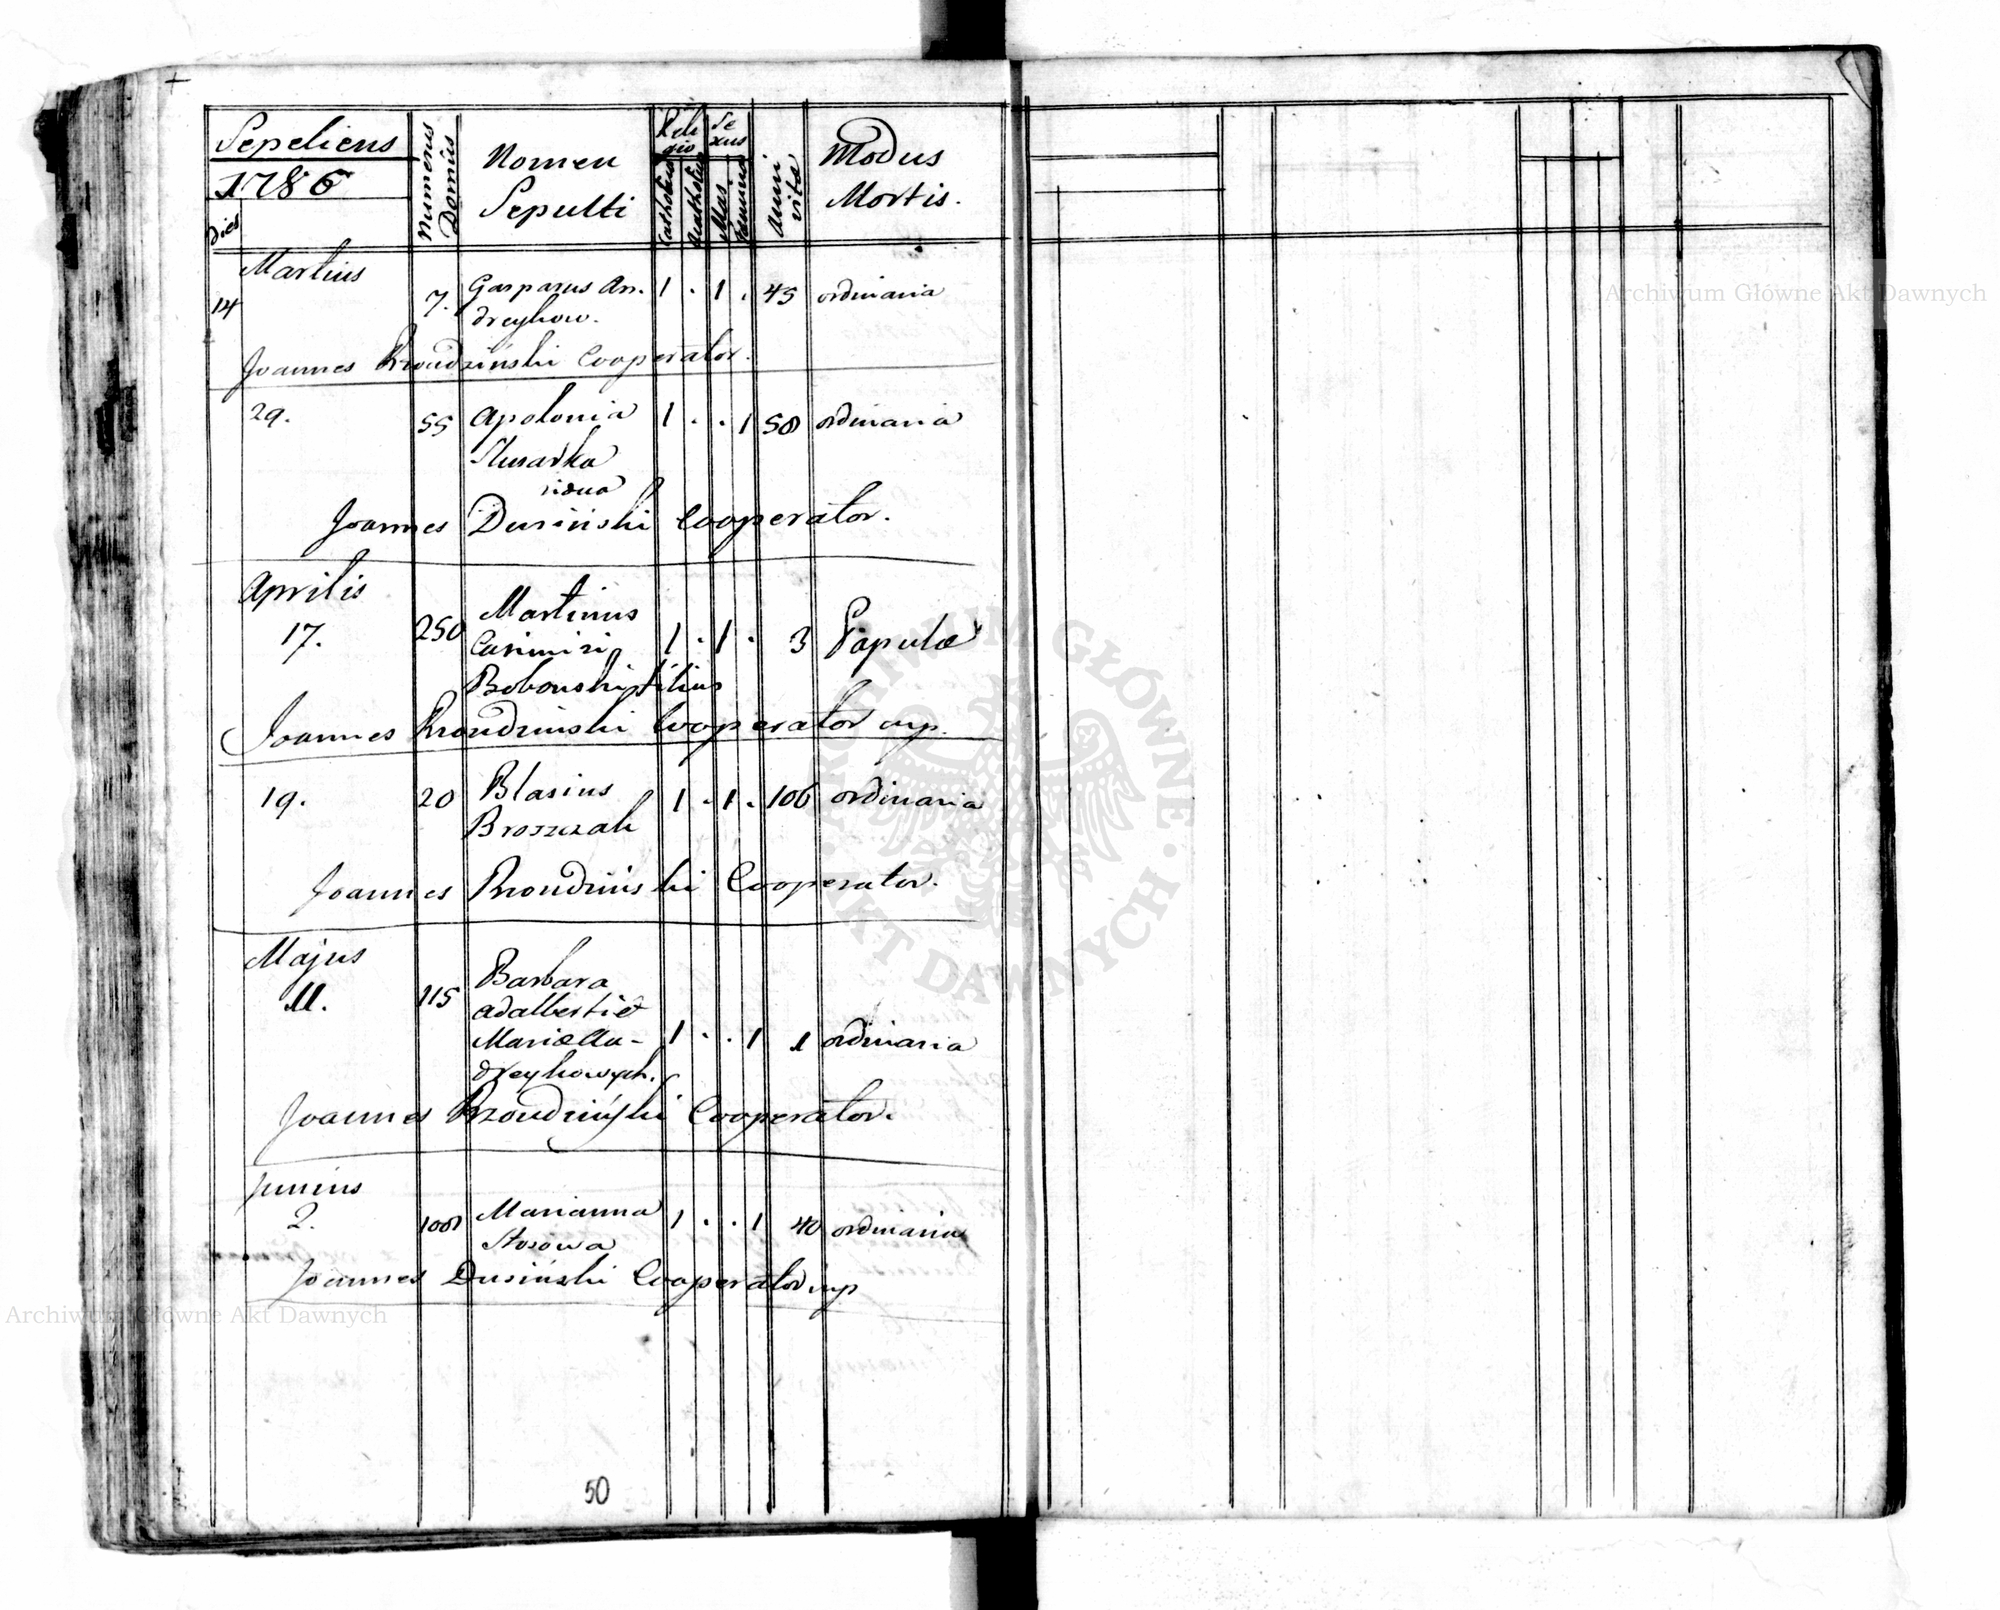 Sepeliens
1786
Dies
Numerus Domûs
Nomen Sepulti
Religio
Catholica
Acatholica
Sexus
Mas
Annui vitæ
Modus Mortis.
Martius
14 7. Gasparus An- 1 . 1 . 45 ordinaria
dreykow.
Joannes Rzondziński Cooperator.
29. 55 Apolonia 1 . . 1 50 ordinaria
Slusarka
vidua
Joannes Dusiński Cooperator.
Aprilis
17. 250 Martinus
Casimiri 1 . 1 . 3 Papulæ
Bobouski filius
Joannes Rzondzinski Cooperator mp.
19. 20 Blasius 1 . 1 . 106 ordinaria
Broszczak
Joannes Rzondziński Cooperator.
Majus
11. 115 Barbara
Adalberti et
Mariæ An- 1 . . 1 1 ordinaria
dreykowych.
Joannes Rzondziński Cooperator.
Junius
2. Marianna 1 . . 1 40 ordinaria
Stosowa
Joannes Dusiński Cooperator mp
50
Archiwum Główne Akt Dawnych
Archiwum Główne Akt Dawnych
ARCHIWUM GŁÓWNE · AKT DAWNYCH ·